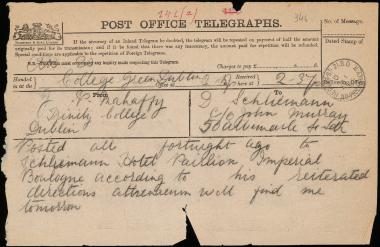 POST OFFICE TELEGRAPHS.
No. of Message.
If the accuracy of an Inland Telegram be doubted, the telegram will be repeated on payment of half the amount
originally paid for its transmission; and if it be found that there was any inaccuracy, the amount paid for repetition will be refunded.
Special conditions are applicable to the repetition of Foreign Telegrams.
Dated Stamp of
N.B.—This Form must accompany any inquiry made respecting this Telegram.
Charges to pay
Handed in at
College Green Dublin
Office at
Received here at
2-37
From
To
Mahaffy
Trinity College
Dublin
D Schliemann
c/o John Murray
50 albemarle St Ldn
Posted all fortnight ago to
Schliemann Hotel Pavillion Imperial
Boulogne according to his reiterated
directions atheneum will find me
tomorrow